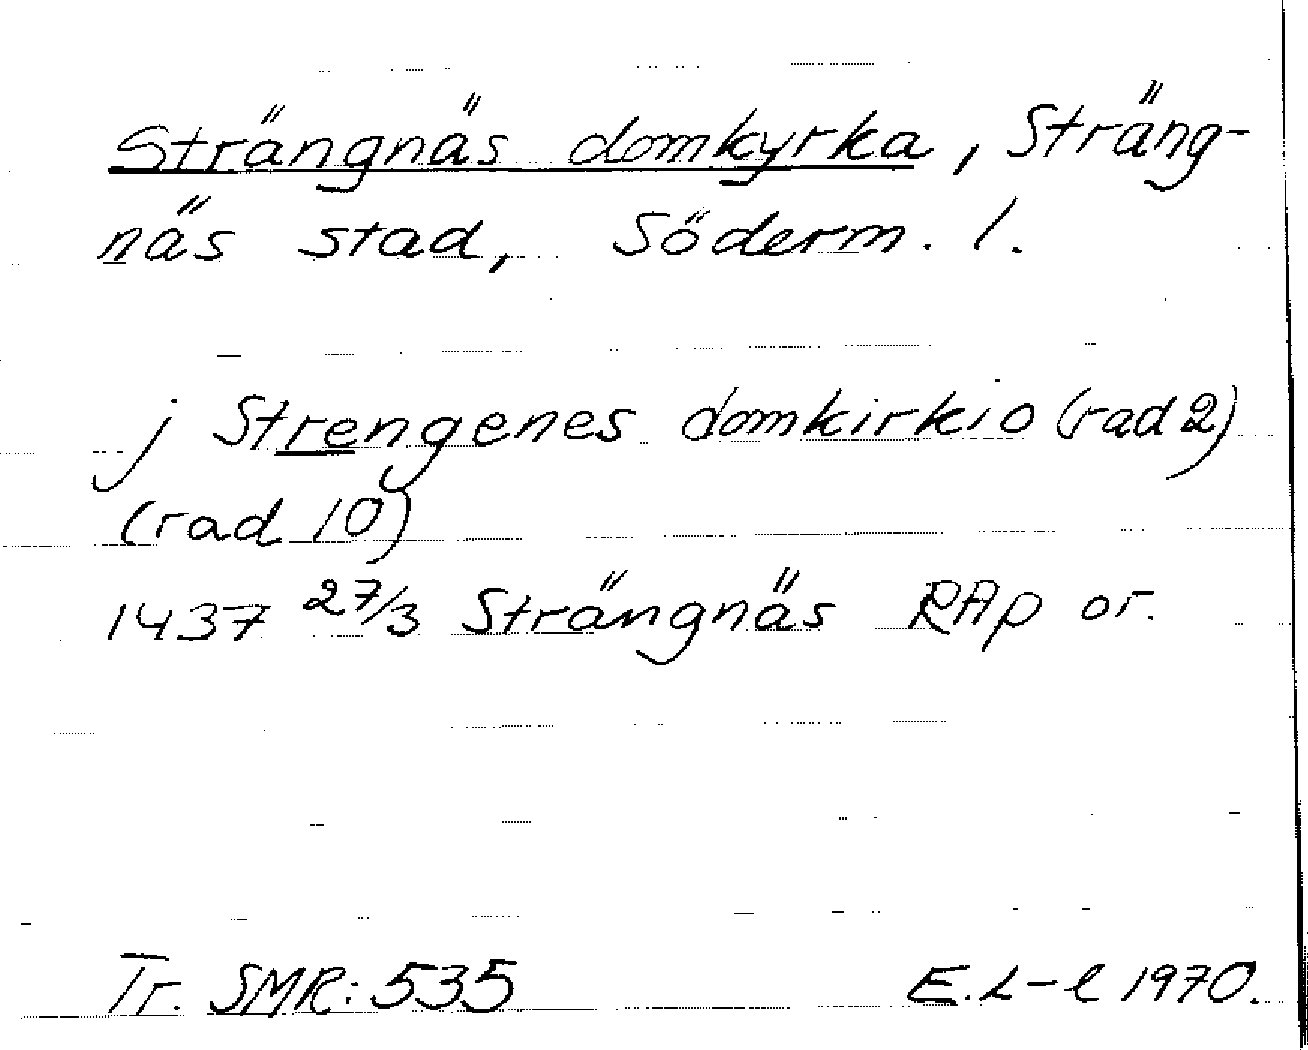 Strängnäs domkyrka, Sträng-
näs stad, Söderm. l.
j Strengenes domkirkio (rad 2)
(rad 10)
1437 27/3 Strängnäs RAp or.
Tr. SMR: 535 E.L-l 1970.